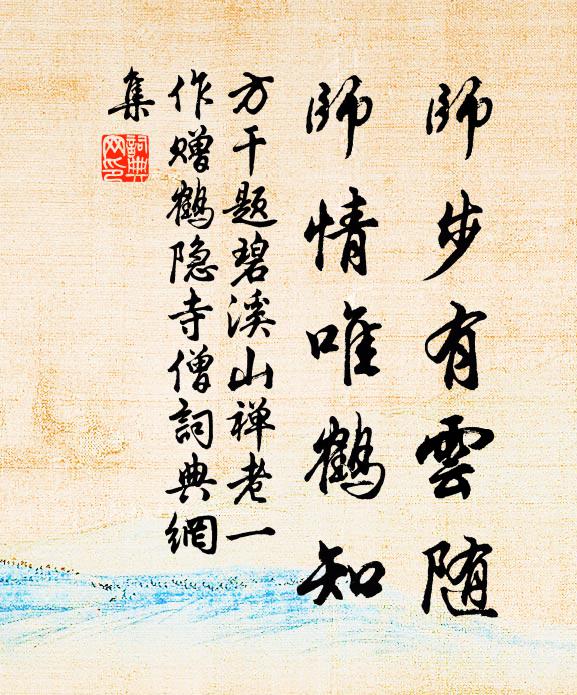 師步有雲随
師情唯鶴知
方干题碧溪山禅老一
作赠鶴隐寺僧詞典網
集
詞典
网印